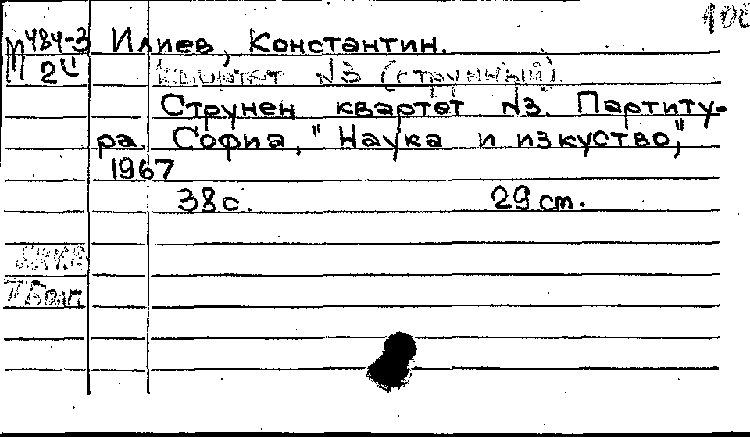 Илиев, Константин.
квартет №3 (струнный).
Струнен квартет №3. Партиту-
ра. София, "Наука и изкуство,"
1967
38 с. 29 cm.